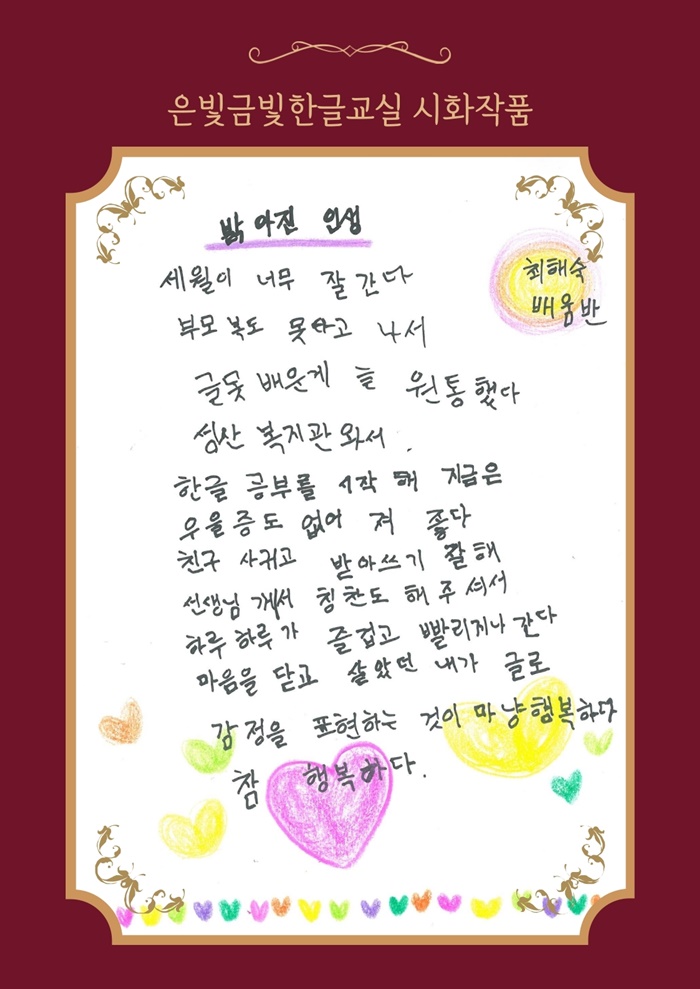 은빛금빛한글교실 시화작품
밝아진 인생
최해숙
배움반
세월이 너무 잘 간다
부모 복도 못타고 나서
글못 배운게 늘 원통했다
성산 복지관 와서.
한글 공부를 시작 해 지금은
우울증도 없어 져 좋다
친구 사귀고 받아쓰기 잘해
선생님 께서 칭찬도 해 주셔서
하루 하루가 즐겁고 빨리지나 간다
마음을 닫고 살았던 내가 글로
감정을 표현하는 것이 마냥행복하다
참 행복하다.